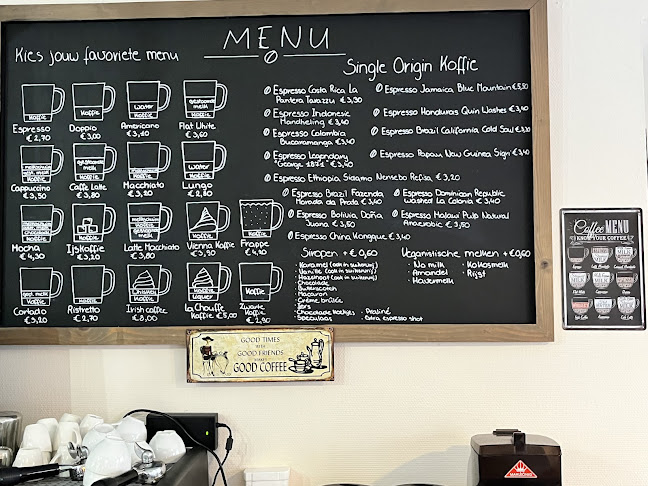 MENU
Kies jouw favoriete menu
Espresso € 2,70
Koffie
Doppio € 3,00
Koffie
Water
Koffie
Americano € 3,10
Gestoomde melk
Koffie
Flat White € 3,60
Koffie
Cappuccino € 3,50
Gestoomde melk
Koffie
Caffe Latte € 3,80
Koffie
Macchiato € 3,20
Water
Koffie
Lungo € 2,80
Koffie
Mocha € 4,30
Koffie
Ijskoffie € 3,00
Koffie
Latte Macchiato € 3,80
Koffie
Vienna Koffie € 3,90
Koffie
Frappe € 4,90
Koffie
Cortado € 3,20
Koffie
Ristretto € 2,70
Whiskey
Koffie
Irish coffee € 8,00
Koffie
Liqueur
La Chouffe Koffie € 5,00
Koffie
Zwarte Koffie € 2,90
Single Origin Koffie
Espresso Costa Rica La Pantera Tarazzu € 3,30
Espresso Indonesie Mandheling € 3,40
Espresso Colombia Bucaramanga € 3,40
Espresso Legendary "George 1871" € 3,40
Espresso Ethiopia Sidamo Nensebo Refisa € 3,20
Espresso Brazil Fazenda Morada da Prata € 3,40
Espresso Bolivia, Doña Juana € 3,50
Espresso China Kongque € 3,40
Espresso Jamaica Blue Mountain € 5,50
Espresso Honduras Quin Washes € 3,40
Espresso Brazil California Cold Saw € 3,30
Espresso Papau New Guinea Sigri € 3,40
Espresso Dominican Republic Washed La Colonia € 3,40
Espresso Malawi Pulp Natural Anaerobic € 3,50
Siropen + € 0,60
- Karamel (ook in suikervrij)
- Vanille (ook in suikervrij)
- Hazelnoot (ook in suikervrij)
- Chocolade
- Butterscotch
- Macaron
- Crème brûlée
- Chocolade koekjes
- Speculoos
- Praliné
- Extra espresso shot
Veganistische melken + € 0,60
- No milk
- Amandel
- Havermelk
- Kokosmelk
- Rijst
GOOD TIMES
GOOD FRIENDS
GOOD COFFEE
Coffee MENU
KNOW YOUR COFFEE